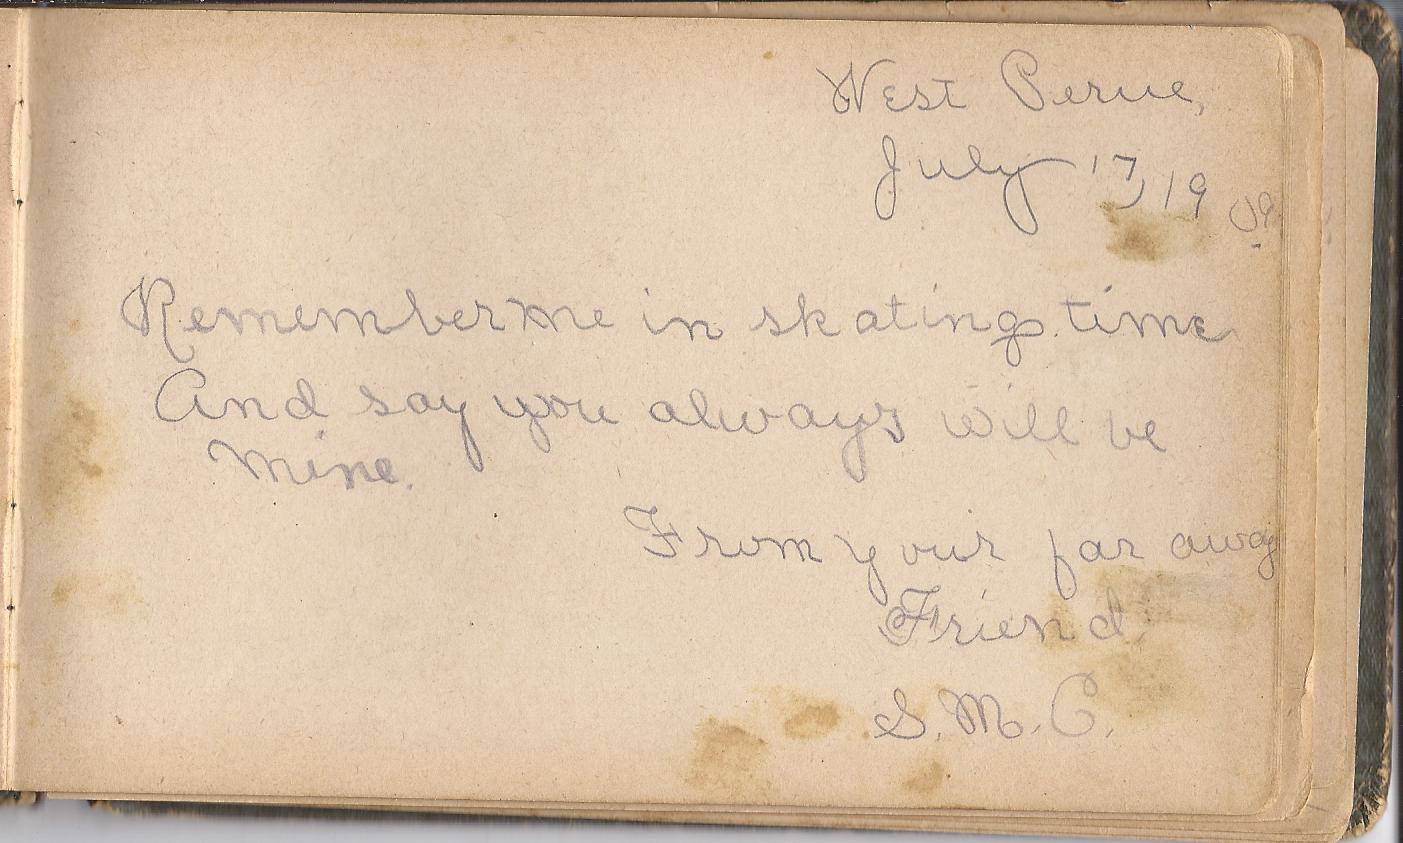 West Perue,
July 17, 19 09.
Remember me in skating time
And say you always will be
mine.
From your far away
Friend.
S. M. C.